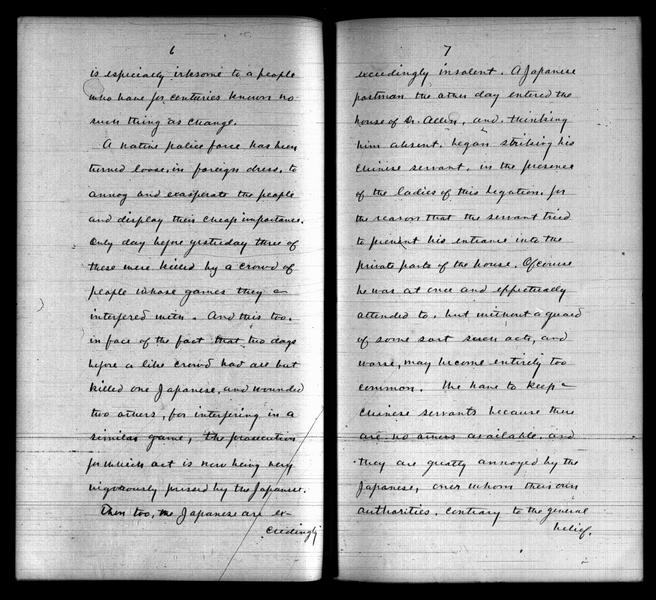 6
is especially irksome to a people
who have for centuries known no
such thing as change.
A native police force has been
turned loose, in foreign dress, to
annoy and exasperate the people
and display their cheap importance.
Only day before yesterday three of
these were killed by a crowd of
people whose games they
interfered with. And this too,
in face of the fact that two days
before a like crowd had all but
killed one Japanese, and wounded
two others, for interfering in a
similar game, the prosecution
for which act is now being very
vigorously pressed by the Japanese.
Then too, the Japanese are ex-
ceedingly
7
exceedingly insolent. A Japanese
postman the other day entered the
house of Dr. Allen, and, thinking
him absent, began striking his
Chinese servant, in the presence
of the ladies of this legation, for
the reason that the servant tried
to prevent his entrance into the
private parts of the house. Of course
he was at once and effectually
attended to, but without a guard
of some sort such acts, and
worse, may become entirely too
common. We have to keep
Chinese servants because there
are no others available, and
they are greatly annoyed by the
Japanese, over whom their own
authorities, contrary to the general
belief,